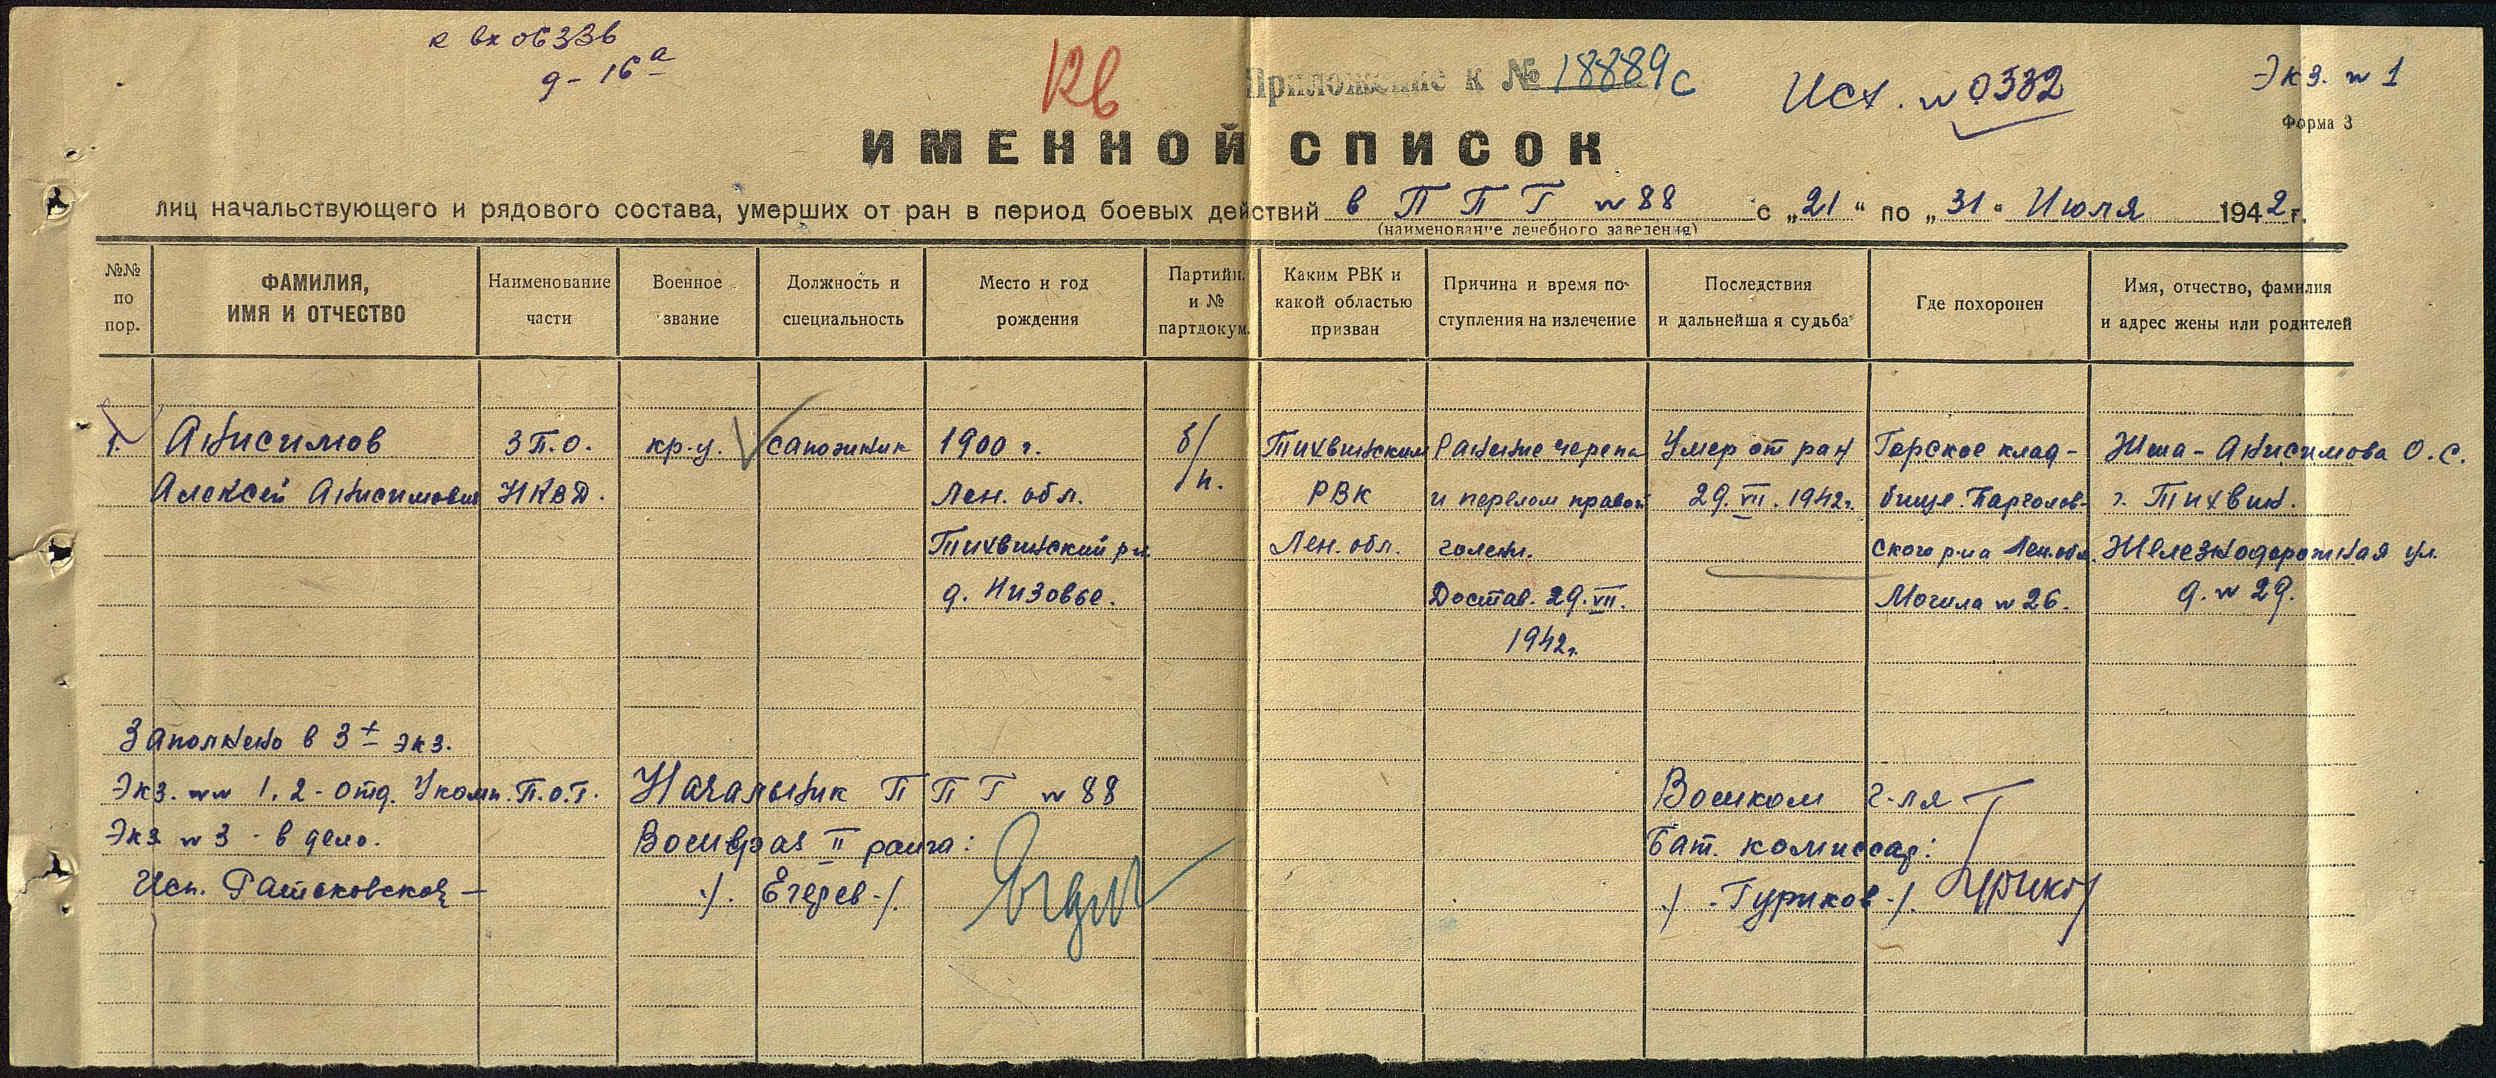 к вх 06336
9 - 16а
Приложение к № 18889с
Исх. № 0332
Экз. № 1
Форма 3
ИМЕННОЙ СПИСОК
лиц начальствующего и рядового состава, умерших от ран в период боевых действий в ППГ № 88 с „21“ по „31“ Июля 1942 г.
(наименование лечебного заведения)
№№ по пор.
ФАМИЛИЯ, ИМЯ И ОТЧЕСТВО
Наименование части
Военное звание
Должность и специальность
Место и год рождения
Партийн. и № партдокум.
Каким РВК и какой областью призван
Причина и время поступления на излечение
Последствия и дальнейшая судьба
Где похоронен
Имя, отчество, фамилия и адрес жены или родителей
1. Анисимов З П.О. кр-ц. сапожник 1900 г. б/п. Тихвинским Ранение черепа Умер от ран Горское клад- Жена - Анисимова О.С.
Алексей Анисимович НКВД. Лен. обл. РВК и перелом правой 29.VII.1942г. бище Парголов- г. Тихвин.
Тихвинский р-н Лен. обл. голени. ского р-на Лен.обл. Железнодорожная ул.
д. Низовье. Достав. 29.VII. Могила № 26. д. № 29.
1942г.
Заполнено в 3х экз.
Экз. №№ 1, 2 - отд. Укомп. П.О.Г. Начальник ППГ № 88 Военком г-ля
Экз № 3 - в дело. Военврач II ранга: Бат. комиссар:
Исп. /. Егерев ./. /. Гуриков ./.